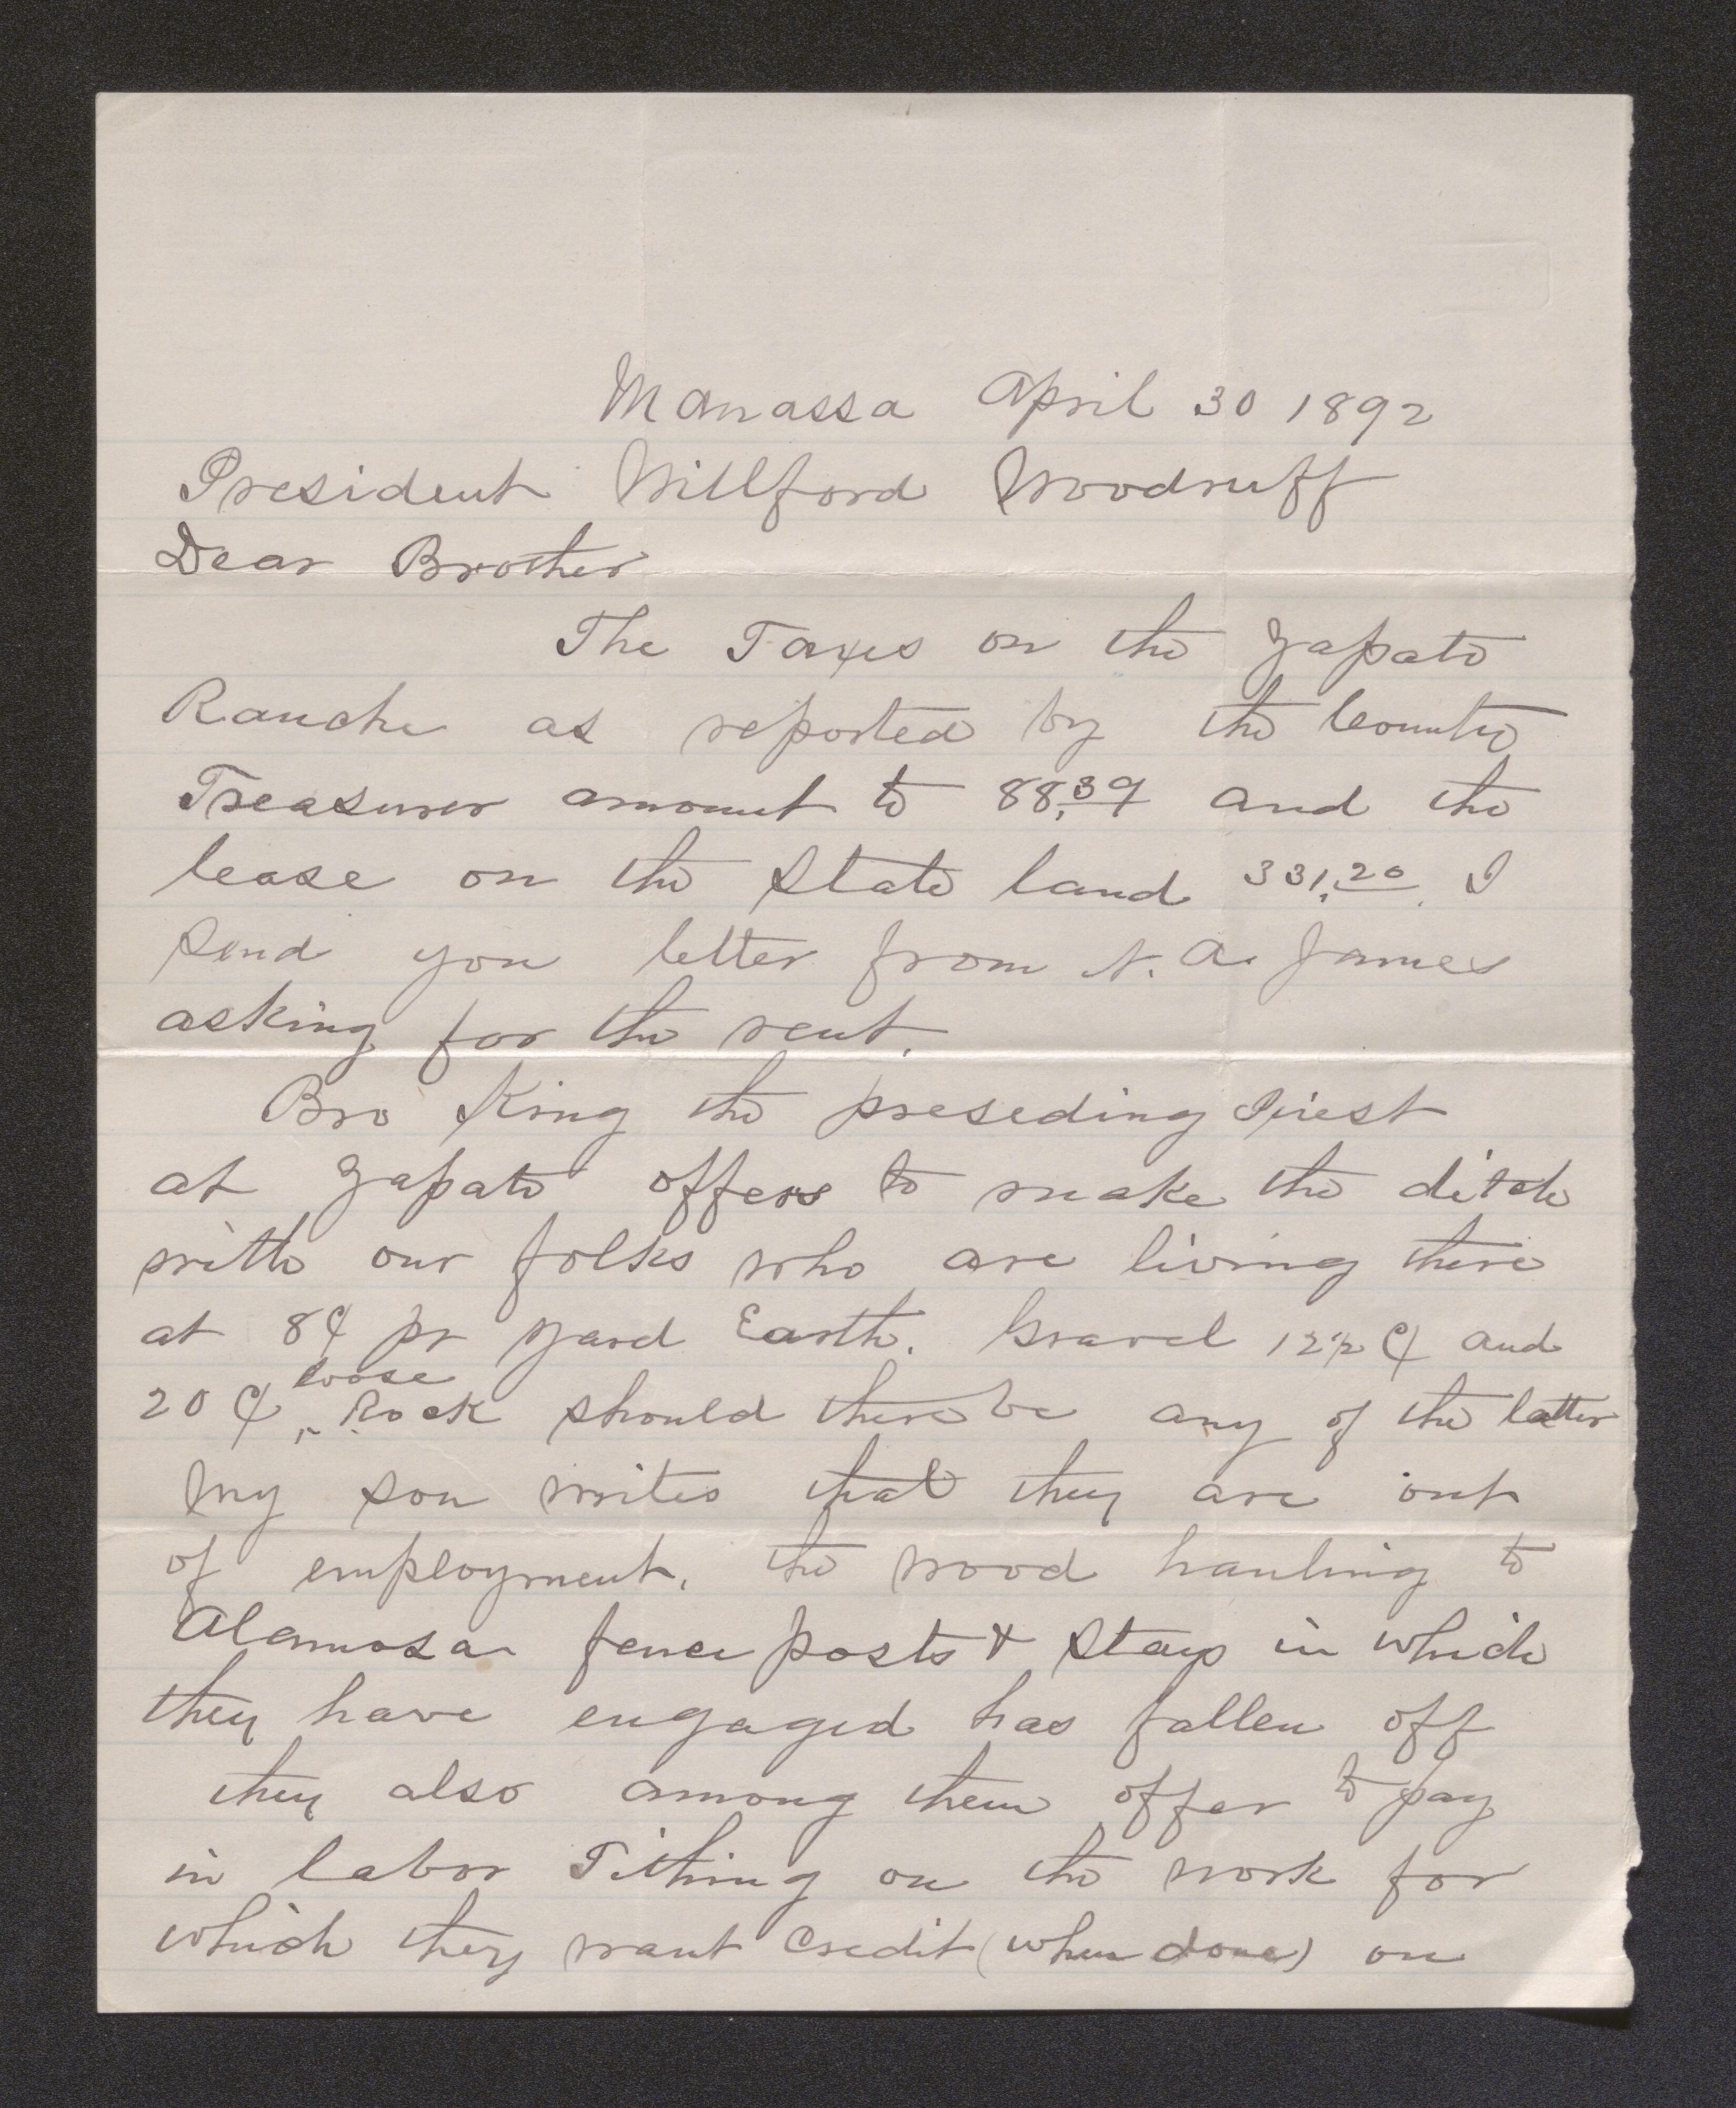 Manassa April 30 1892
President Willford Woodruff
Dear Brother
The Taxes on the Zapato
Ranche as reported by the County
Treasurer amount to 88.39 and the
lease on the State land 331.20. I
send you letter from N. A. James
asking for the rent.
Bro King the preseding Priest
at Zapato offers to make the ditch
with our folks who are living there
at 8¢ pr yard Earth. Gravel 12 1/2 ¢ and
loose
20 ¢ ^ Rock should there be any of the latter
My son writes that they are out
of employment, the wood hauling to
Alamosa fence posts & Stays in which
they have engaged has fallen off
they also among them offer to pay
in labor Tithing on the work for
which they want Credit (when done) on